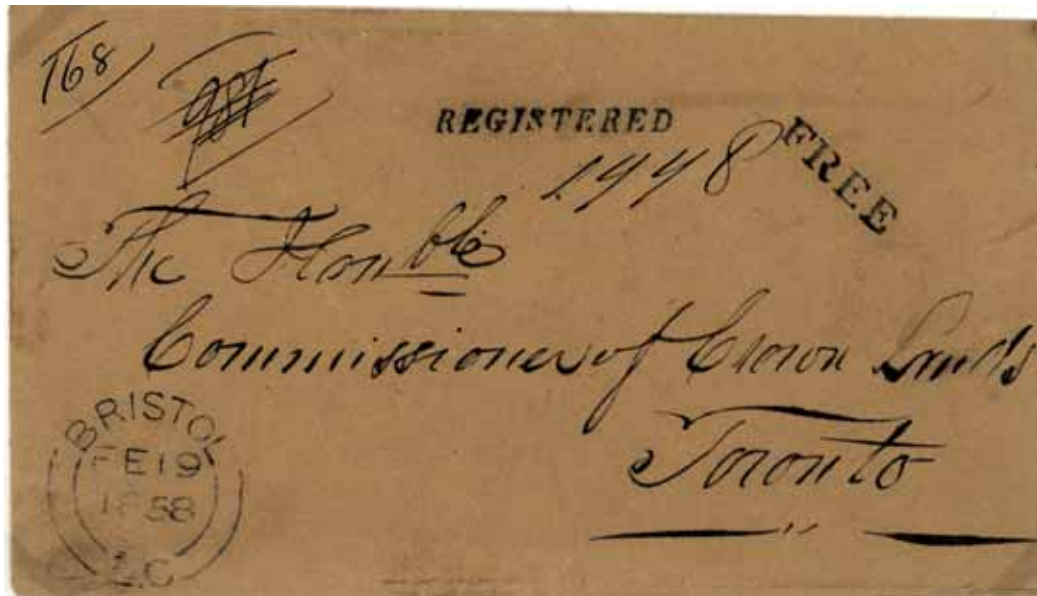 168
REGISTERED
FREE
The Honble
Commissioner of Crown Lands
Toronto
BRISTOL
FE 19
1858
L.C